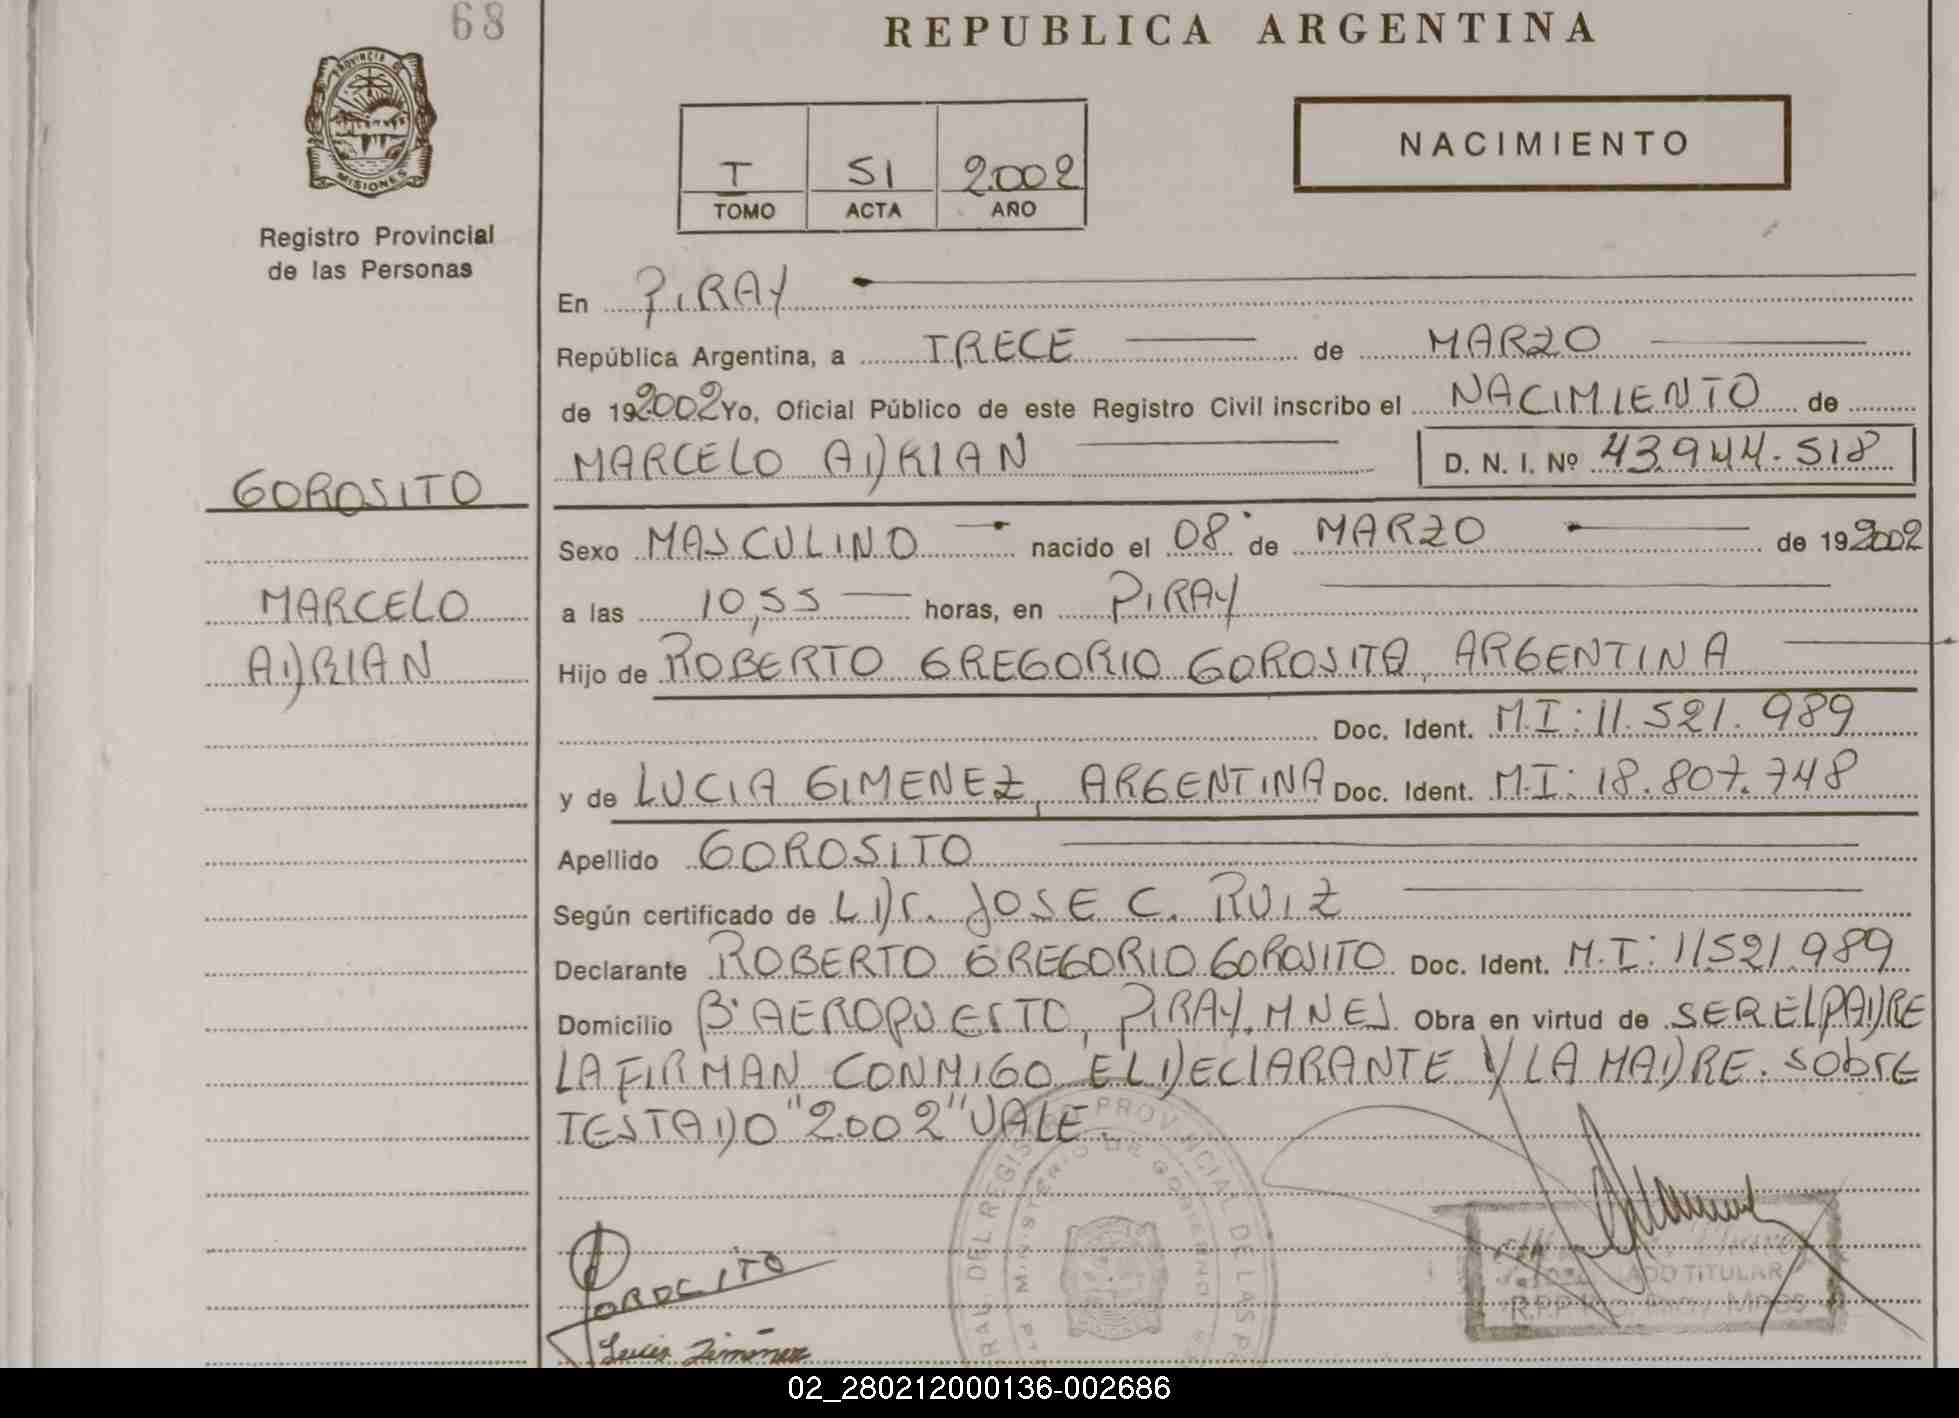 68
REPUBLICA ARGENTINA
PROVINCIA DE
MISIONES
Registro Provincial
de las Personas
T SI 2.002
TOMO ACTA AÑO
NACIMIENTO
En PIRAY
República Argentina, a TRECE de MARZO
de 192002 Yo, Oficial Público de este Registro Civil inscribo el NACIMIENTO de
MARCELO ADRIAN D. N. I. Nº 43.944.518
GOROSITO
MARCELO
ADRIAN
Sexo MASCULINO nacido el 08 de MARZO de 192002
a las 10,55 horas, en PIRAY
Hijo de ROBERTO GREGORIO GOROSITO, ARGENTINA
Doc. Ident. M.I: 11.521.989
y de LUCIA GIMENEZ, ARGENTINA Doc. Ident. M.I: 18.807.748
Apellido GOROSITO
Según certificado de JOSE C. RUIZ
Declarante ROBERTO GREGORIO GOROSITO Doc. Ident. M.I: 11.521.989
Domicilio Bº AEROPUERTO, PIRAY, MNES Obra en virtud de SER EL PADRE
LA FIRMAN CONMIGO EL DECLARANTE Y LA MADRE. Sobre
TESTADO "2.002" VALE.
PROVINCIAL DE LAS
MINISTERIO DE GOBIERNO
GOROCITO
TITULAR
02_280212000136-002686